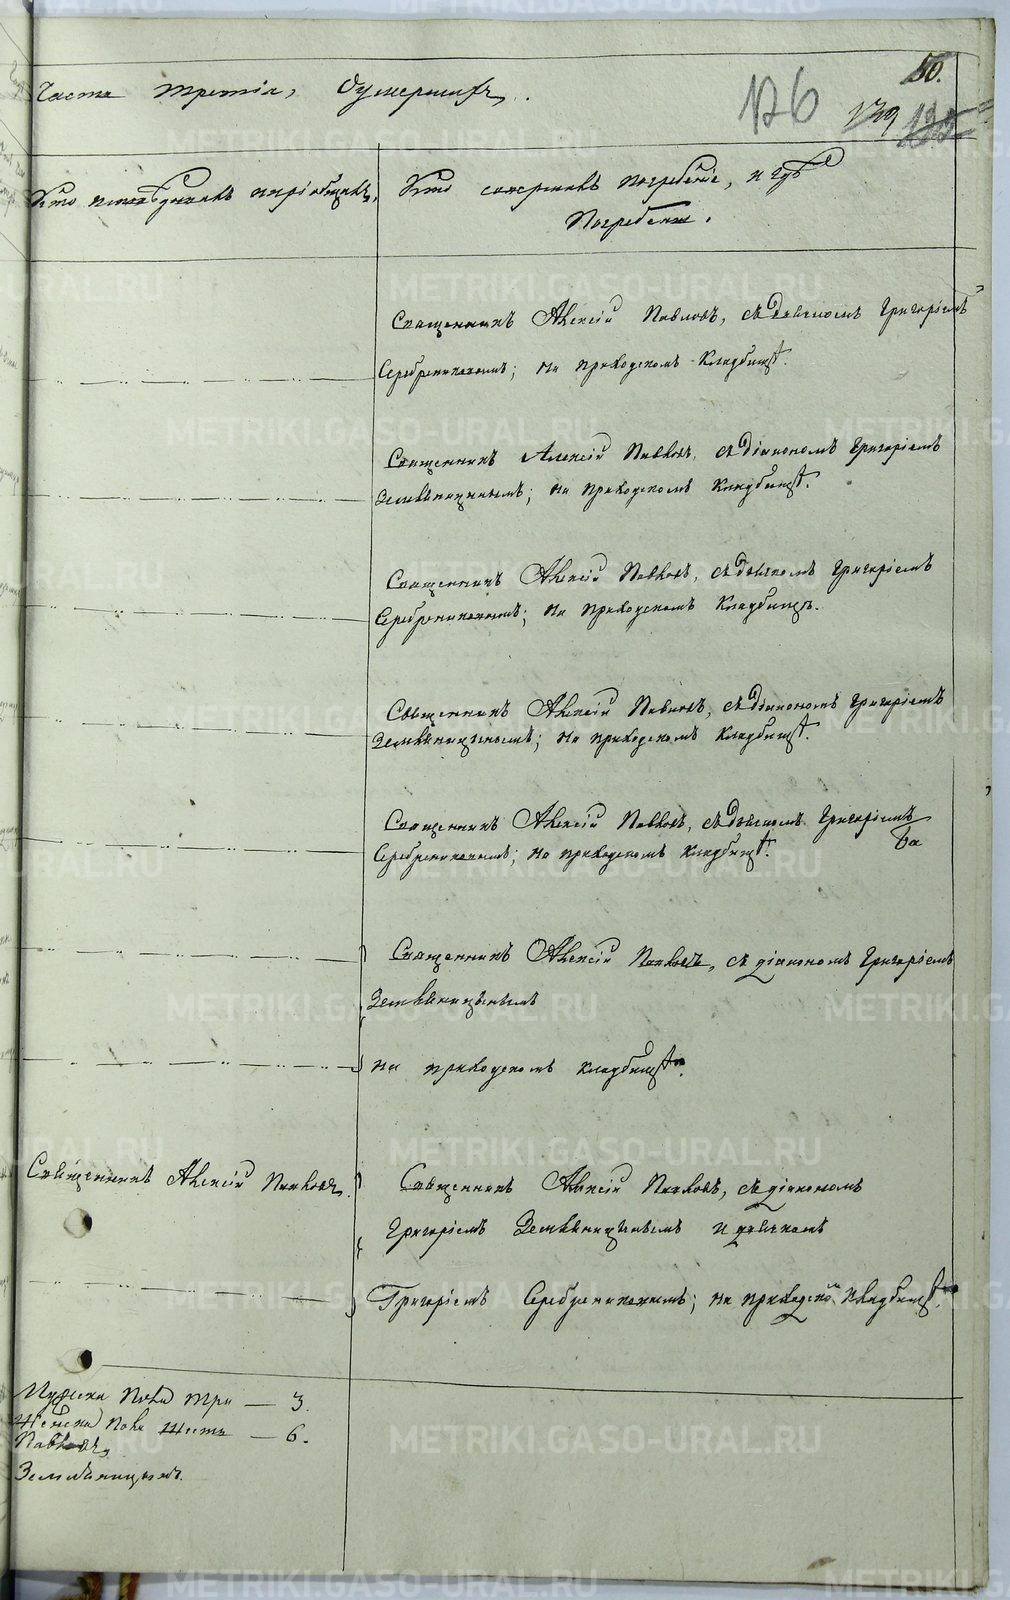 50.
Часть третія, Оумершихъ.
126
139
Кто исповѣдывалъ и пріобщалъ.
Кто совершалъ погребеніе, и гдѣ
Погребены.
Священникъ Алексій Павловъ, съ дьячкомъ Григоріемъ
Серебрениковымъ; на приходскомъ Кладбищѣ.
Священникъ Алексій Павловъ, съ діакономъ Григоріемъ
Земляницынымъ; на приходскомъ Кладбищѣ.
Священникъ Алексій Павловъ, съ дьячкомъ Григоріемъ
Серебрениковымъ; на приходскомъ Кладбищѣ.
Священникъ Алексій Павловъ, съ діакономъ Григоріемъ
Земляницынымъ; на приходскомъ Кладбищѣ.
Священникъ Алексій Павловъ, съ дьячкомъ Григоріемъ
Серебрениковымъ; на приходскомъ кладбищѣ.
Священникъ Алексій Павловъ, съ діакономъ Григоріемъ
Земляницынымъ
на приходскомъ кладбищѣ.
Священникъ Алексій Павловъ.
Священникъ Алексій Павловъ, съ діакономъ
Григоріемъ Земляницынымъ и дьячкомъ
Григоріемъ Серебрениковымъ; на приходском Кладбищѣ.
Мужеска пола три — 3.
Женска пола шесть — 6.
Павловъ
Земляницынъ.
METRIKI.GASO-URAL.RU